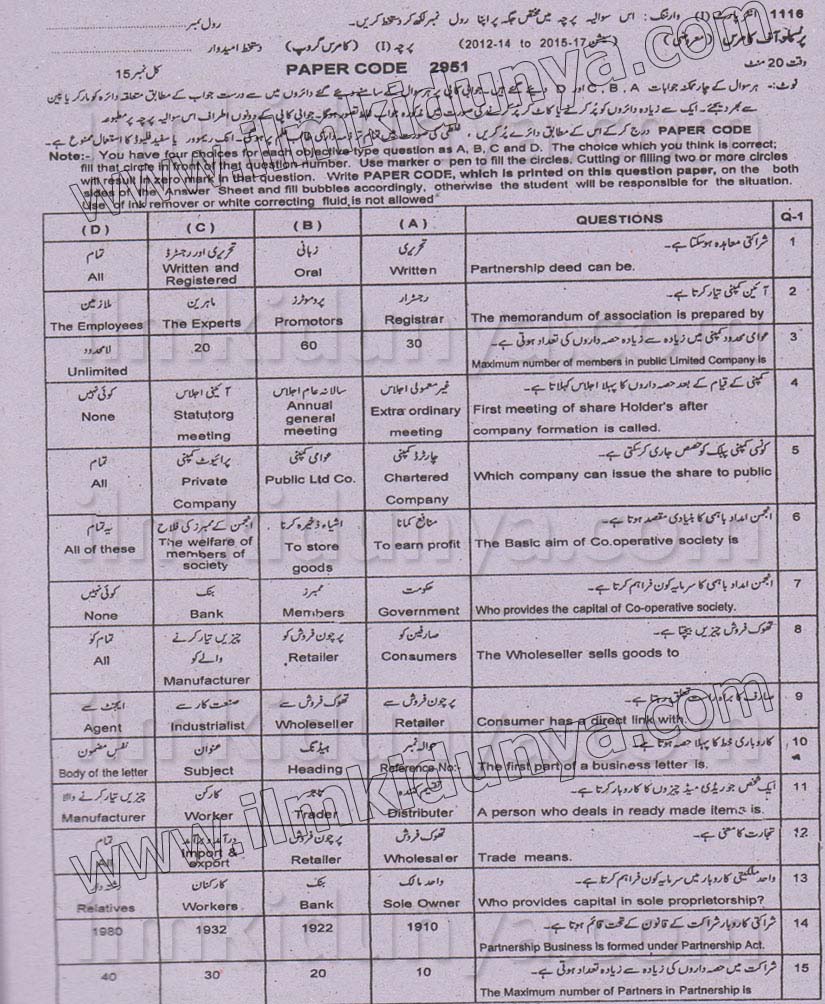 1116 انٹر پارٹ (I) وارننگ:۔ اس سوالیہ پرچہ میں مختص جگہ پر اپنا رول نمبر لکھ کر دستخط کریں۔ رول نمبر
پرنسپلز آف کامرس (معروضی) (سیشن 2015-17 to 2012-14) پرچہ (I) (کامرس گروپ) دستخط امیدوار
وقت 20 منٹ PAPER CODE 2951 کل نمبر 15
نوٹ:۔ ہر سوال کے چار ممکنہ جوابات A، B، C اور D دیئے گئے ہیں۔ جوابی کاپی پر ہر سوال کے سامنے دیئے گئے دائروں میں سے درست جواب کے مطابق متعلقہ دائرہ کو مارکر یا پین
سے بھر دیجئے۔ ایک سے زیادہ دائروں کو پُر کرنے یا کاٹ کر پُر کرنے کی صورت میں مذکورہ جواب غلط تصور ہوگا۔ جوابی کاپی کے دونوں اطراف اس سوالیہ پرچہ پر مطبوعہ
PAPER CODE درج کر کے اس کے مطابق دائرے پُر کریں، غلطی کی صورت میں تمام تر ذمہ داری طالب علم پر ہوگی۔ انک ریموور یا سفید فلیوڈ کا استعمال ممنوع ہے۔
Note:- You have four choices for each objective type question as A, B, C and D. The choice which you think is correct;
fill that circle in front of that question number. Use marker o pen to fill the circles. Cutting or filling two or more circles
will result in zero mark in that question. Write PAPER CODE, which is printed on this question paper, on the both
sides of the Answer Sheet and fill bubbles accordingly, otherwise the student will be responsible for the situation.
Use of ink remover or white correcting fluid is not allowed
(D) (C) (B) (A) QUESTIONS Q-1
تمام تحریری اور رجسٹرڈ زبانی تحریری شراکتی معاہدہ ہو سکتا ہے۔ 1
All Written and Registered Oral Written Partnership deed can be.
ملازمین ماہرین پروموٹرز رجسٹرار آئین کمپنی تیار کرتا ہے۔ 2
The Employees The Experts Promotors Registrar The memorandum of association is prepared by
لامحدود 20 60 30 عوامی محدود کمپنی میں زیادہ سے زیادہ حصہ داروں کی تعداد ہوتی ہے۔ 3
Unlimited Maximum number of members in public Limited Company is
کوئی نہیں آئینی اجلاس سالانہ عام اجلاس غیر معمولی اجلاس کمپنی کے قیام کے بعد حصہ داروں کا پہلا اجلاس کہلاتا ہے۔ 4
None Statutorg meeting Annual general meeting Extra ordinary meeting First meeting of share Holder's after
company formation is called.
تمام پرائیوٹ کمپنی عوامی کمپنی چارٹرڈ کمپنی کونسی کمپنی پبلک کو حصص جاری کر سکتی ہے۔ 5
All Private Company Public Ltd Co. Chartered Company Which company can issue the share to public
یہ تمام انجمن کے ممبرز کی فلاح اشیاء ذخیرہ کرنا منافع کمانا انجمن امداد باہمی کا بنیادی مقصد ہوتا ہے۔ 6
All of these The welfare of members of society To store goods To earn profit The Basic aim of Co.operative society is
کوئی نہیں بنک ممبرز حکومت انجمن امداد باہمی کا سرمایہ کون فراہم کرتا ہے۔ 7
None Bank Members Government Who provides the capital of Co-operative society.
تمام کو چیزیں تیار کرنے والے کو پرچون فروش کو صارفین کو تھوک فروش چیزیں بیچتا ہے۔ 8
All Manufacturer Retailer Consumers The Wholeseller sells goods to
ایجنٹ سے صنعت کار سے تھوک فروش سے پرچون فروش سے صارف کا براہ راست تعلق ہوتا ہے۔ 9
Agent Industrialist Wholeseller Retailer Consumer has a direct link with.
نفس مضمون عنوان ہیڈنگ حوالہ نمبر کاروباری خط کا پہلا حصہ ہوتا ہے۔ 10
Body of the letter Subject Heading Reference No:- The first part of a business letter is.
چیزیں تیار کرنے والا کارکن تاجر تقسیم کنندہ ایک شخص جو ریڈی میڈ چیزوں کا کاروبار کرتا ہے۔ 11
Manufacturer Worker Trader Distributer A person who deals in ready made items is.
تمام درآمد و برآمد پرچون فروش تھوک فروش تجارت کا معنی ہے۔ 12
All Import & export Retailer Wholesaler Trade means.
رشتہ دار کارکنان بنک واحد مالک واحد ملکیتی کاروبار میں سرمایہ کون فراہم کرتا ہے۔ 13
Relatives Workers Bank Sole Owner Who provides capital in sole proprietorship?
1980 1932 1922 1910 شراکتی کاروبار شراکت کے قانون کے تحت قائم ہوتا ہے۔ 14
Partnership Business is formed under Partnership Act.
40 30 20 10 شراکت میں حصہ داروں کی زیادہ سے زیادہ تعداد ہوتی ہے۔ 15
The Maximum number of Partners in Partnership is
www.ilmkidunya.com
www.ilmkidunya.com
ilmkidunya.com
ilmkidunya.com
ilmkidunya.com